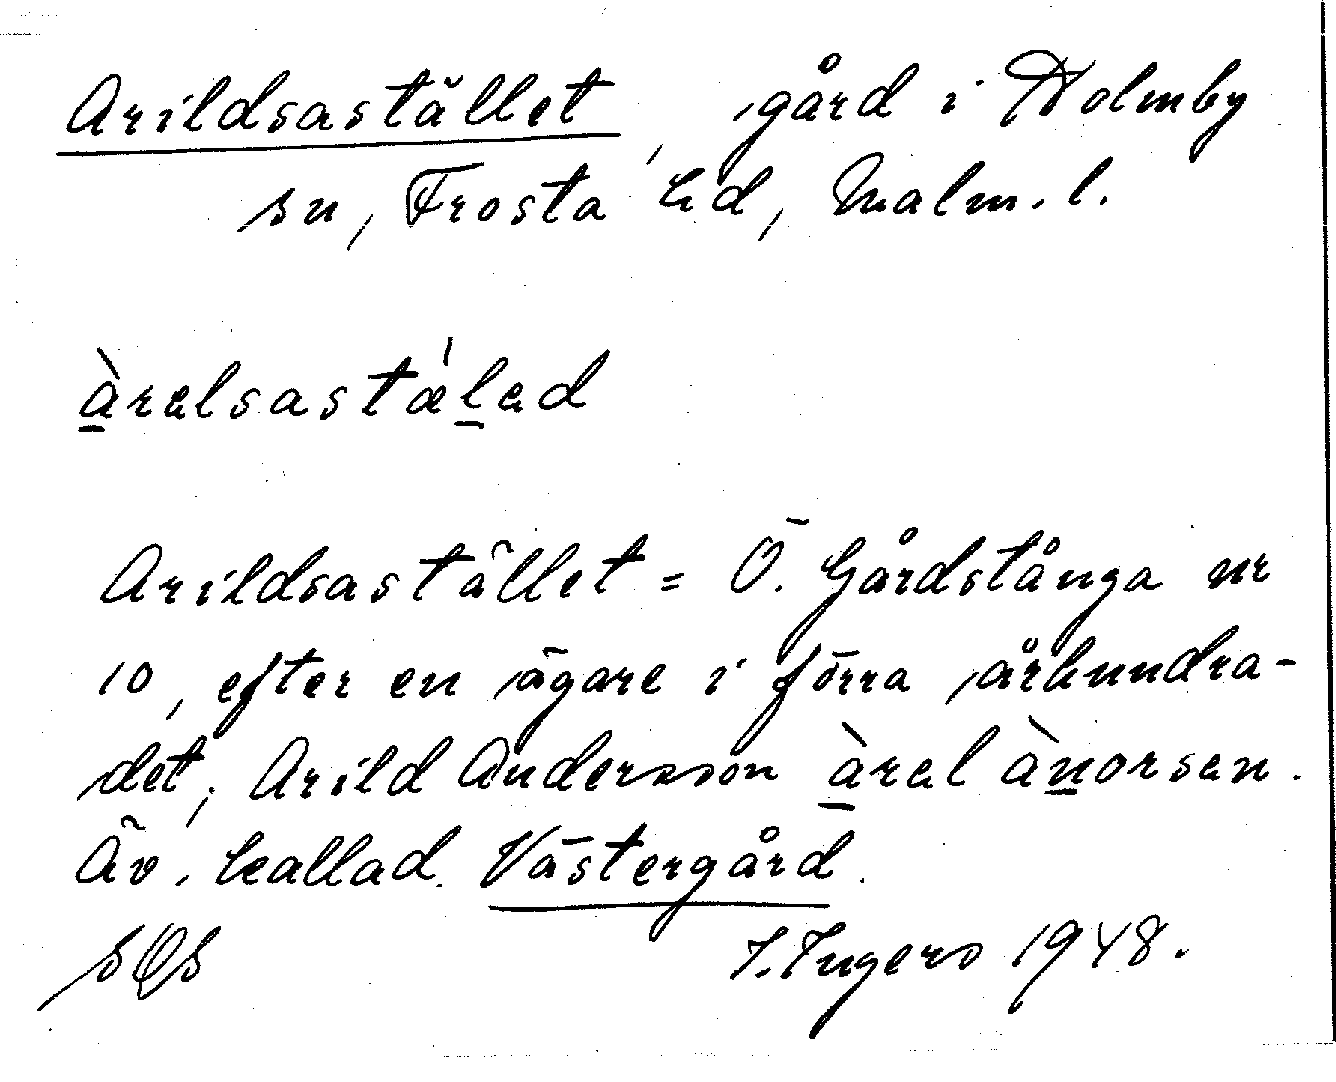 Arildsastället, gård i Holmby
sn, Frosta hd, Malm. l.
àrelsastæ̍led
Arildsastället = Ö. Gårdstånga nr
10, efter en ägare i förra århundra-
det, Arild Andersson àrel ànorsen.
Äv. kallad Västergård.
SOS I. Ingers 1948.